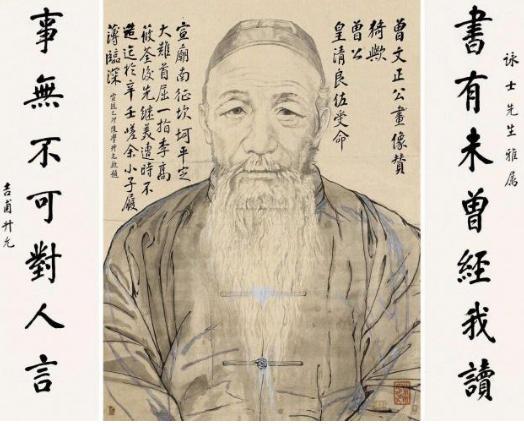 詠士先生雅屬
書有未曾經我讀
曾文正公畫像贊
猗歟
曾公
皇清良佐受命
宣廟南征坎坷平定
大難首屈一指李高
筱荃後先継美遭時不
造迄於辛壬嗟余小子履
薄臨深
事無不可對人言
吉甫升允